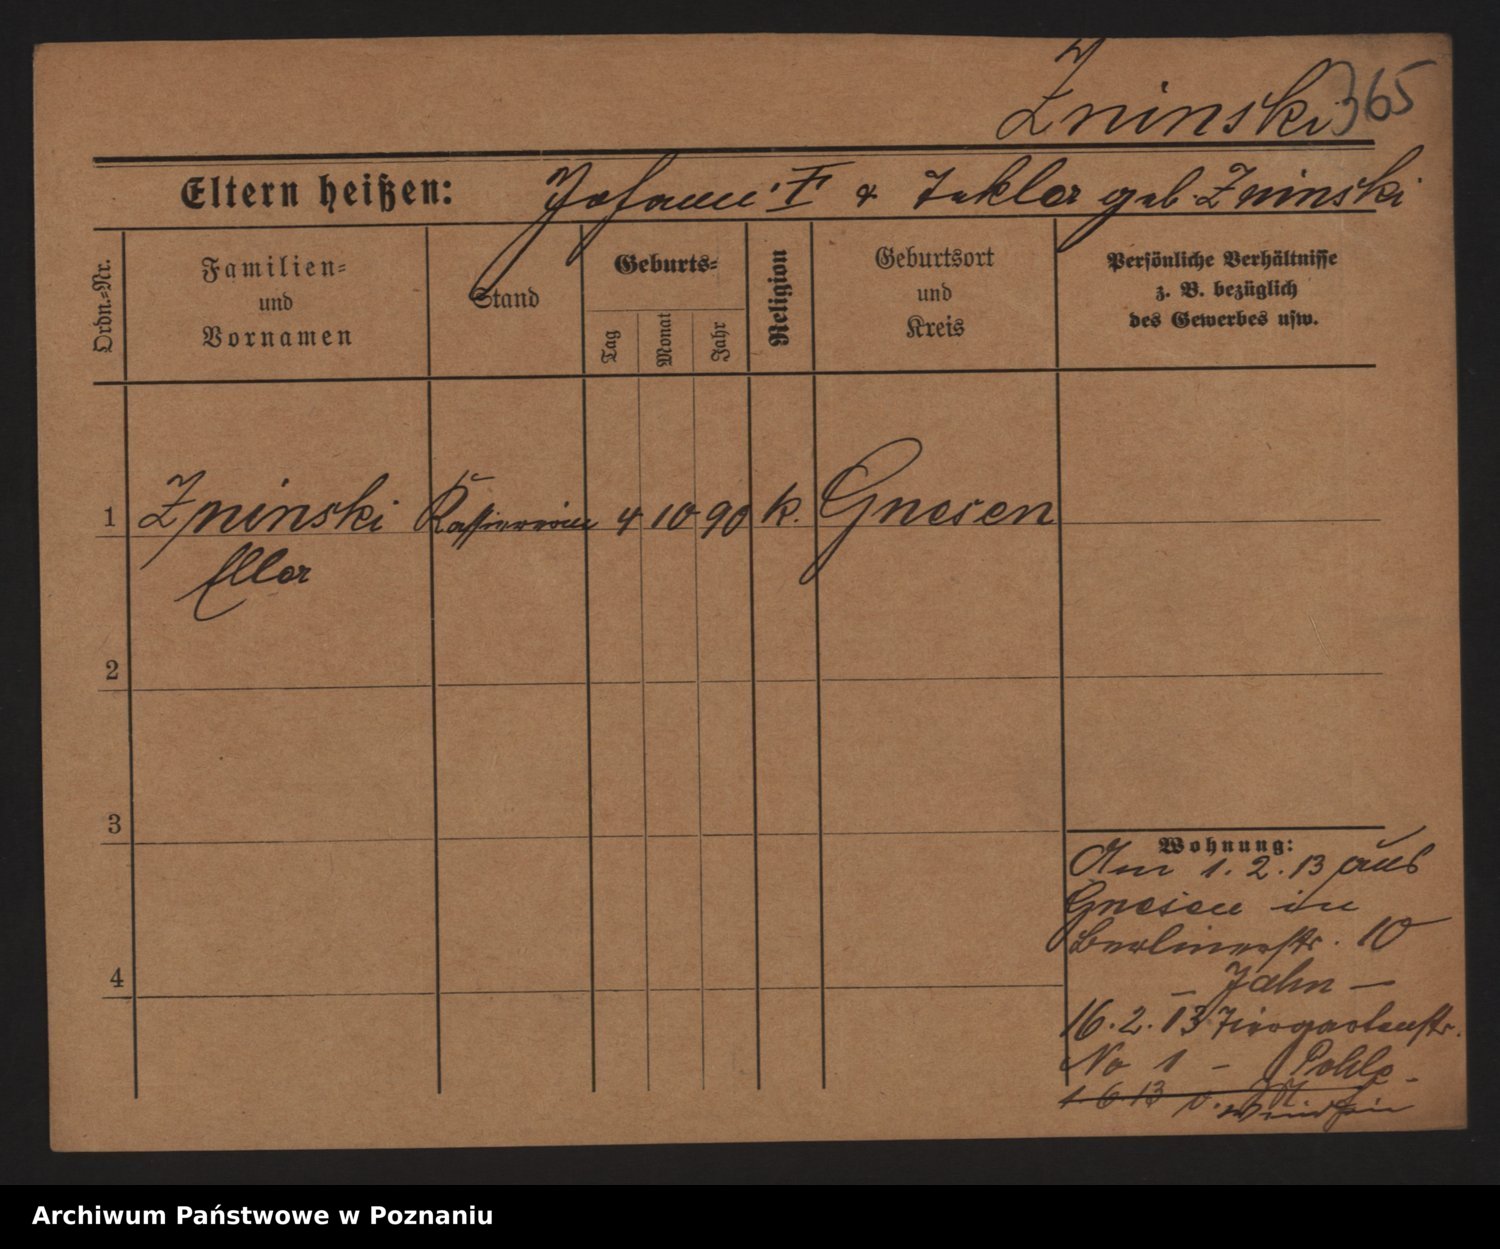 Zninski 365
Eltern heißen: Johann F & Tekla geb. Zninski
Ordn.-Nr.
Familien-
und
Vornamen
Stand
Geburts-
Tag
Monat
Jahr
Religion
Geburtsort
und
Kreis
Persönliche Verhältnisse
z. B. bezüglich
des Gewerbes usw.
1 Zninski Kassiererin 4 10 90 k. Gnesen
Ella
2
3
4
Wohnung:
Am 1. 2. 13 aus
Gnesen in
Berlinerstr. 10
– Jahn –
16. 2. 13 Tiergartenstr.
No 1 –
1. 6. 13 v.